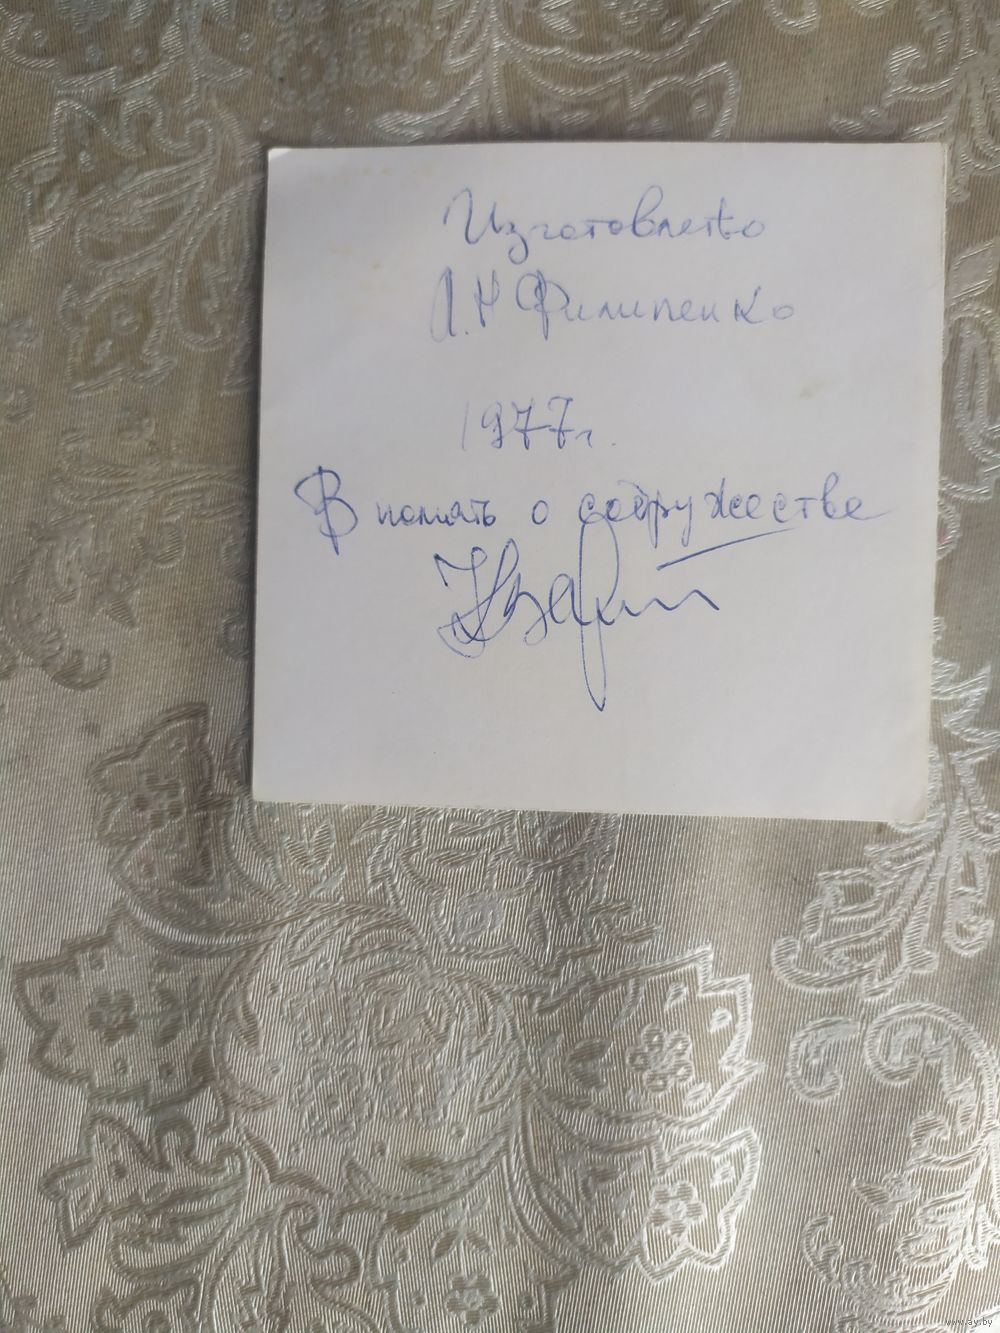 Изготовлено
А.Н Филипенко
1977г.
В память о содружестве
www.ay.by